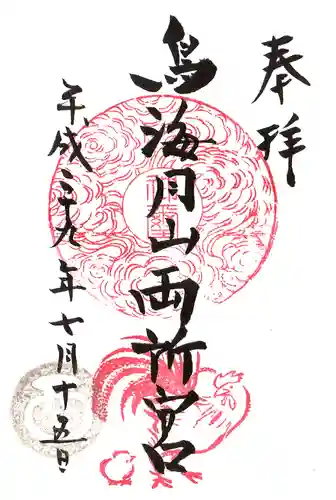 奉拝
鳥海月山両所宮
平成二十九年七月十五日